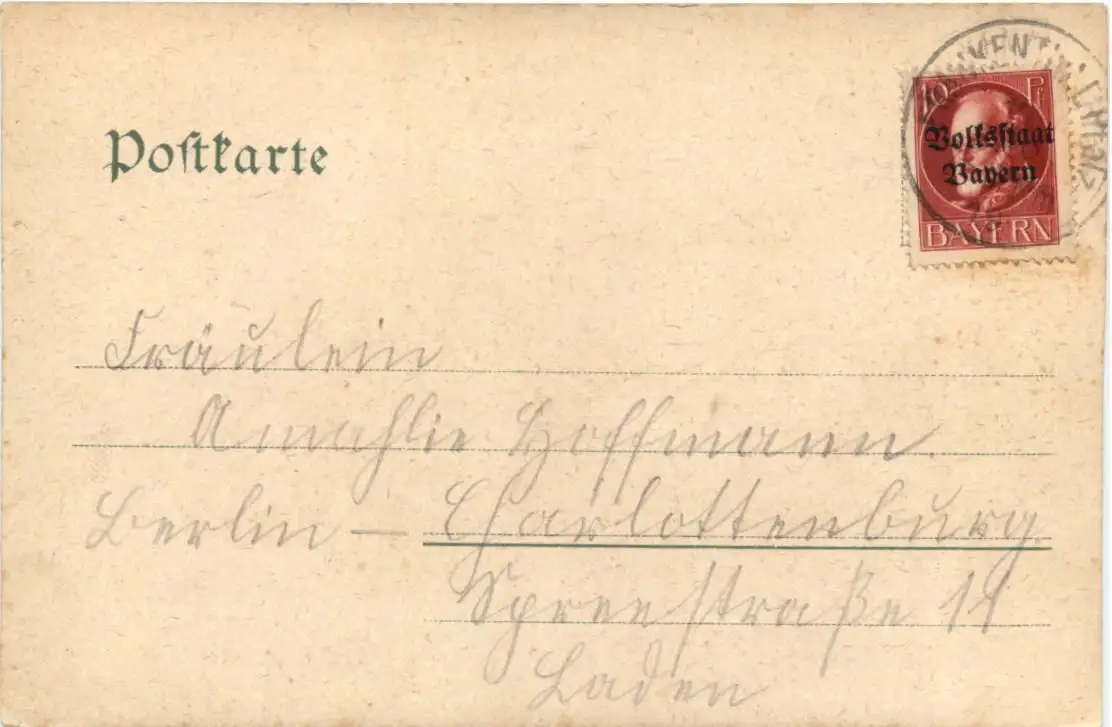 Postkarte
10 Pf
Volksstaat
Bayern
BAYERN
Fräulein
Amahlie Hoffmann.
Berlin — Charlottenburg
Spreestraße 11
Laden